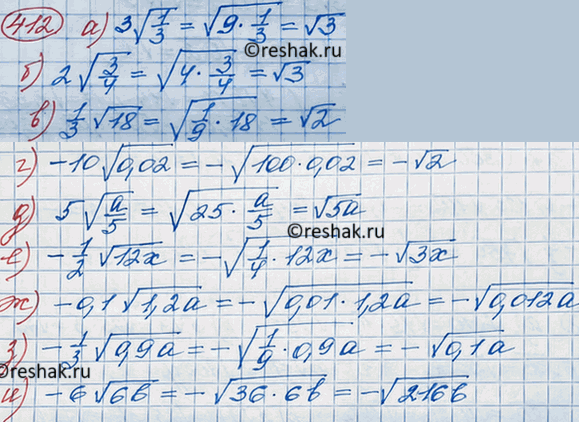 412 а) 3√(1/3) = √(9 · 1/3) = √3
©reshak.ru
б) 2√(3/4) = √(4 · 3/4) = √3
в) 1/3 √18 = √(1/9 · 18) = √2
г) -10√0,02 = -√(100 · 0,02) = -√2
д) 5√(a/5) = √(25 · a/5) = √5a
©reshak.ru
е) -1/2 √12x = -√(1/4 · 12x) = -√3x
ж) -0,1√1,2a = -√(0,01 · 1,2a) = -√0,012a
з) -1/3 √0,9a = -√(1/9 · 0,9a) = -√0,1a
©reshak.ru
и) -6√6b = -√(36 · 6b) = -√216b